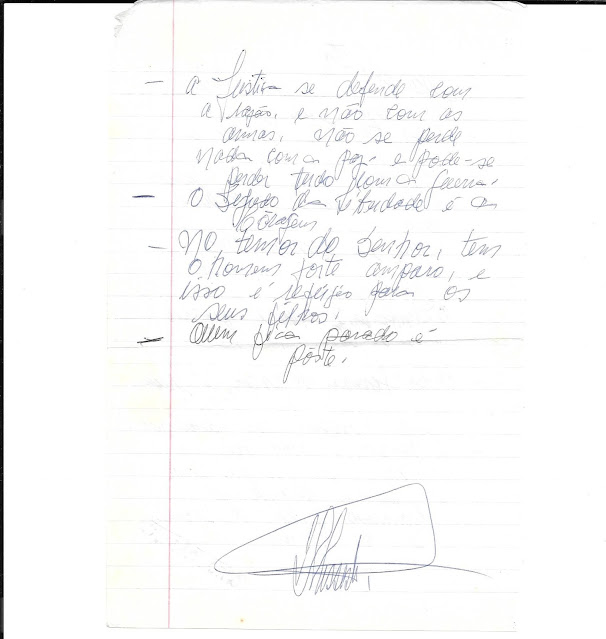 — a Justiça se defende com
a Razão, e não com as
armas, não se perde
nada com a paz e pode-se
perder tudo com a guerra.
— O Segredo da Liberdade é a
Coragem
— No temor do Senhor, tem
o homem forte amparo, e
isso é refúgio para os
seus filhos.
— Quem fica parado é
pôste.